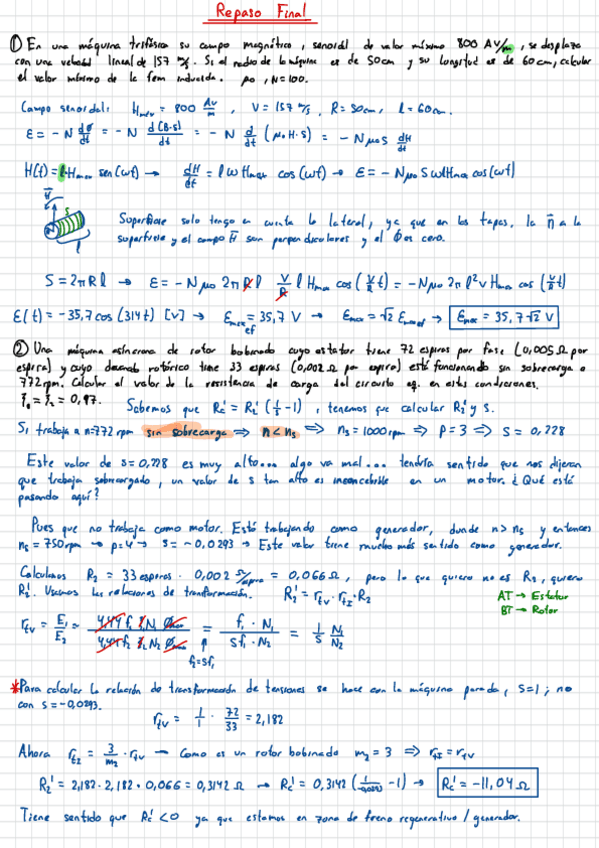 Repaso Final
① En una máquina trifásica su campo magnético, senoidal de valor máximo 800 AV/m, se desplaza
con una velocidad lineal de 157 m/s. Si el radio de la máquina es de 50cm y su longitud es de 60cm, calcular
el valor máximo de la fem inducida. μo, N=100.
Campo senoidal: Hmáx = 800 Av/m, V = 157 m/s, R = 50cm, l = 60cm.
ε = -N dΦ/dt = -N d(B·S)/dt = -N d/dt (μo·H·S) = -N μo S dH/dt
H(t) = l·Hmax sen(ωt) → dH/dt = l ω Hmax cos(ωt) → ε = -Nμo S ω l Hmax cos(ωt)
Superficie solo tengo en cuenta la lateral, ya que en las tapas, la n̄ a la
superficie y el campo H̄ son perpendiculares y el Φ es cero.
S = 2πRl → ε = -Nμo 2πRl V/R l Hmax cos(V/R t) = -Nμo 2π l²v Hmax cos(V/R t)
ε(t) = -35,7 cos(314t) [V] → Emax ef = 35,7 V → Emax = √2 Emaxef → Emax = 35,7√2 V
② Una máquina asíncrona de rotor bobinado cuyo estator tiene 72 espiras por fase (0,005Ω por
espira) y cuyo devanado rotórico tiene 33 espiras (0,002Ω por espira) está funcionando sin sobrecarga a
772rpm. Calcular el valor de la resistencia de carga del circuito eq. en estas condiciones.
ξ1 = ξ2 = 0,97.
Sabemos que Rc' = R2'(1/s -1), tenemos que calcular R2' y s.
Si trabaja a n=772rpm sin sobrecarga ⇒ n<ns ⇒ ns=1000rpm ⇒ p=3 ⇒ S = 0,228
Este valor de s=0,228 es muy alto... algo va mal... tendría sentido que nos dijeran
que trabaja sobrecargado, un valor de s tan alto es inconcebible en un motor. ¿Qué está
pasando aquí?
Pues que no trabaja como motor. Está trabajando como generador, donde n>ns y entonces
ns = 750rpm → p=4 → s = -0,0293 → Este valor tiene mucho más sentido como generador.
Calculamos R2 = 33espiras · 0,002 Ω/espira = 0,066Ω, pero lo que quiero no es R2, quiero
R2'. Usamos las relaciones de transformación. R2' = rtv · rtI · R2
AT → Estator
BT → Rotor
rtv = E1/E2 = 4,44 f1 ξ1 N1 Φmax / 4,44 f2 ξ2 N2 Φmax = f1·N1 / Sf1·N2 = 1/S N1/N2
f2=Sf1
*Para calcular la relación de transformación de tensiones se hace con la máquina parada, S=1; no
con s=-0,0293.
rtv = 1/1 · 72/33 = 2,182
Ahora rtI = 3/m2 · rtv → Como es un rotor bobinado m2=3 ⇒ rtI = rtv
R2' = 2,182 · 2,182 · 0,066 = 0,3142 Ω → Rc' = 0,3142 (1/-0,0293 -1) → Rc' = -11,04 Ω
Tiene sentido que Rc' <0 ya que estamos en zona de freno regenerativo / generador.